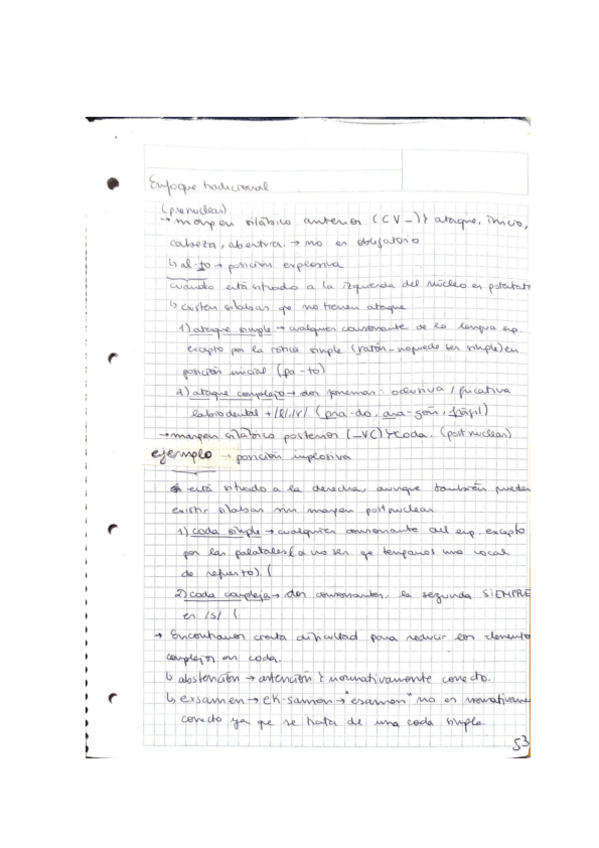 Enfoque tradicional
(prenuclear)
→ margen silábico anterior (CV-)} ataque, inicio,
cabeza, abertura. → no es obligatorio
↳ al-to → posición explosiva
cuando está situado a la izquierda del núcleo es
↳ existen sílabas qe no tienen ataque
1) ataque simple → cualquier consonante de la lengua esp.
excepto por la rótica simple (ratón - no puede ser simple) en
posición inicial (pa-to)
2) ataque complejo → dos fonemas: oclusiva / fricativa
labiodental + /l/, /r/ (pra-do, , frágil)
→ margen silábico posterior (-VC) } coda. (postnuclear)
ejemplo → posición implosiva
está situado a la derecha, aunque también pueden
existir sílabas sin margen postnuclear
1) coda simple → cualquier consonante del esp. excepto
por las palatales (a no ser qe tengamos una vocal
de refuerzo). (
2) coda compleja → dos consonantes, la segunda SIEMPRE
es /s/ (
→ Encontramos cierta dificultad para reducir los elemento
complejos en coda.
↳ abstención → astención } normativamente correcto.
↳ exsamen → ek-samen → "esamen" no es normativame
correcto ya que se trata de una coda simple.
53